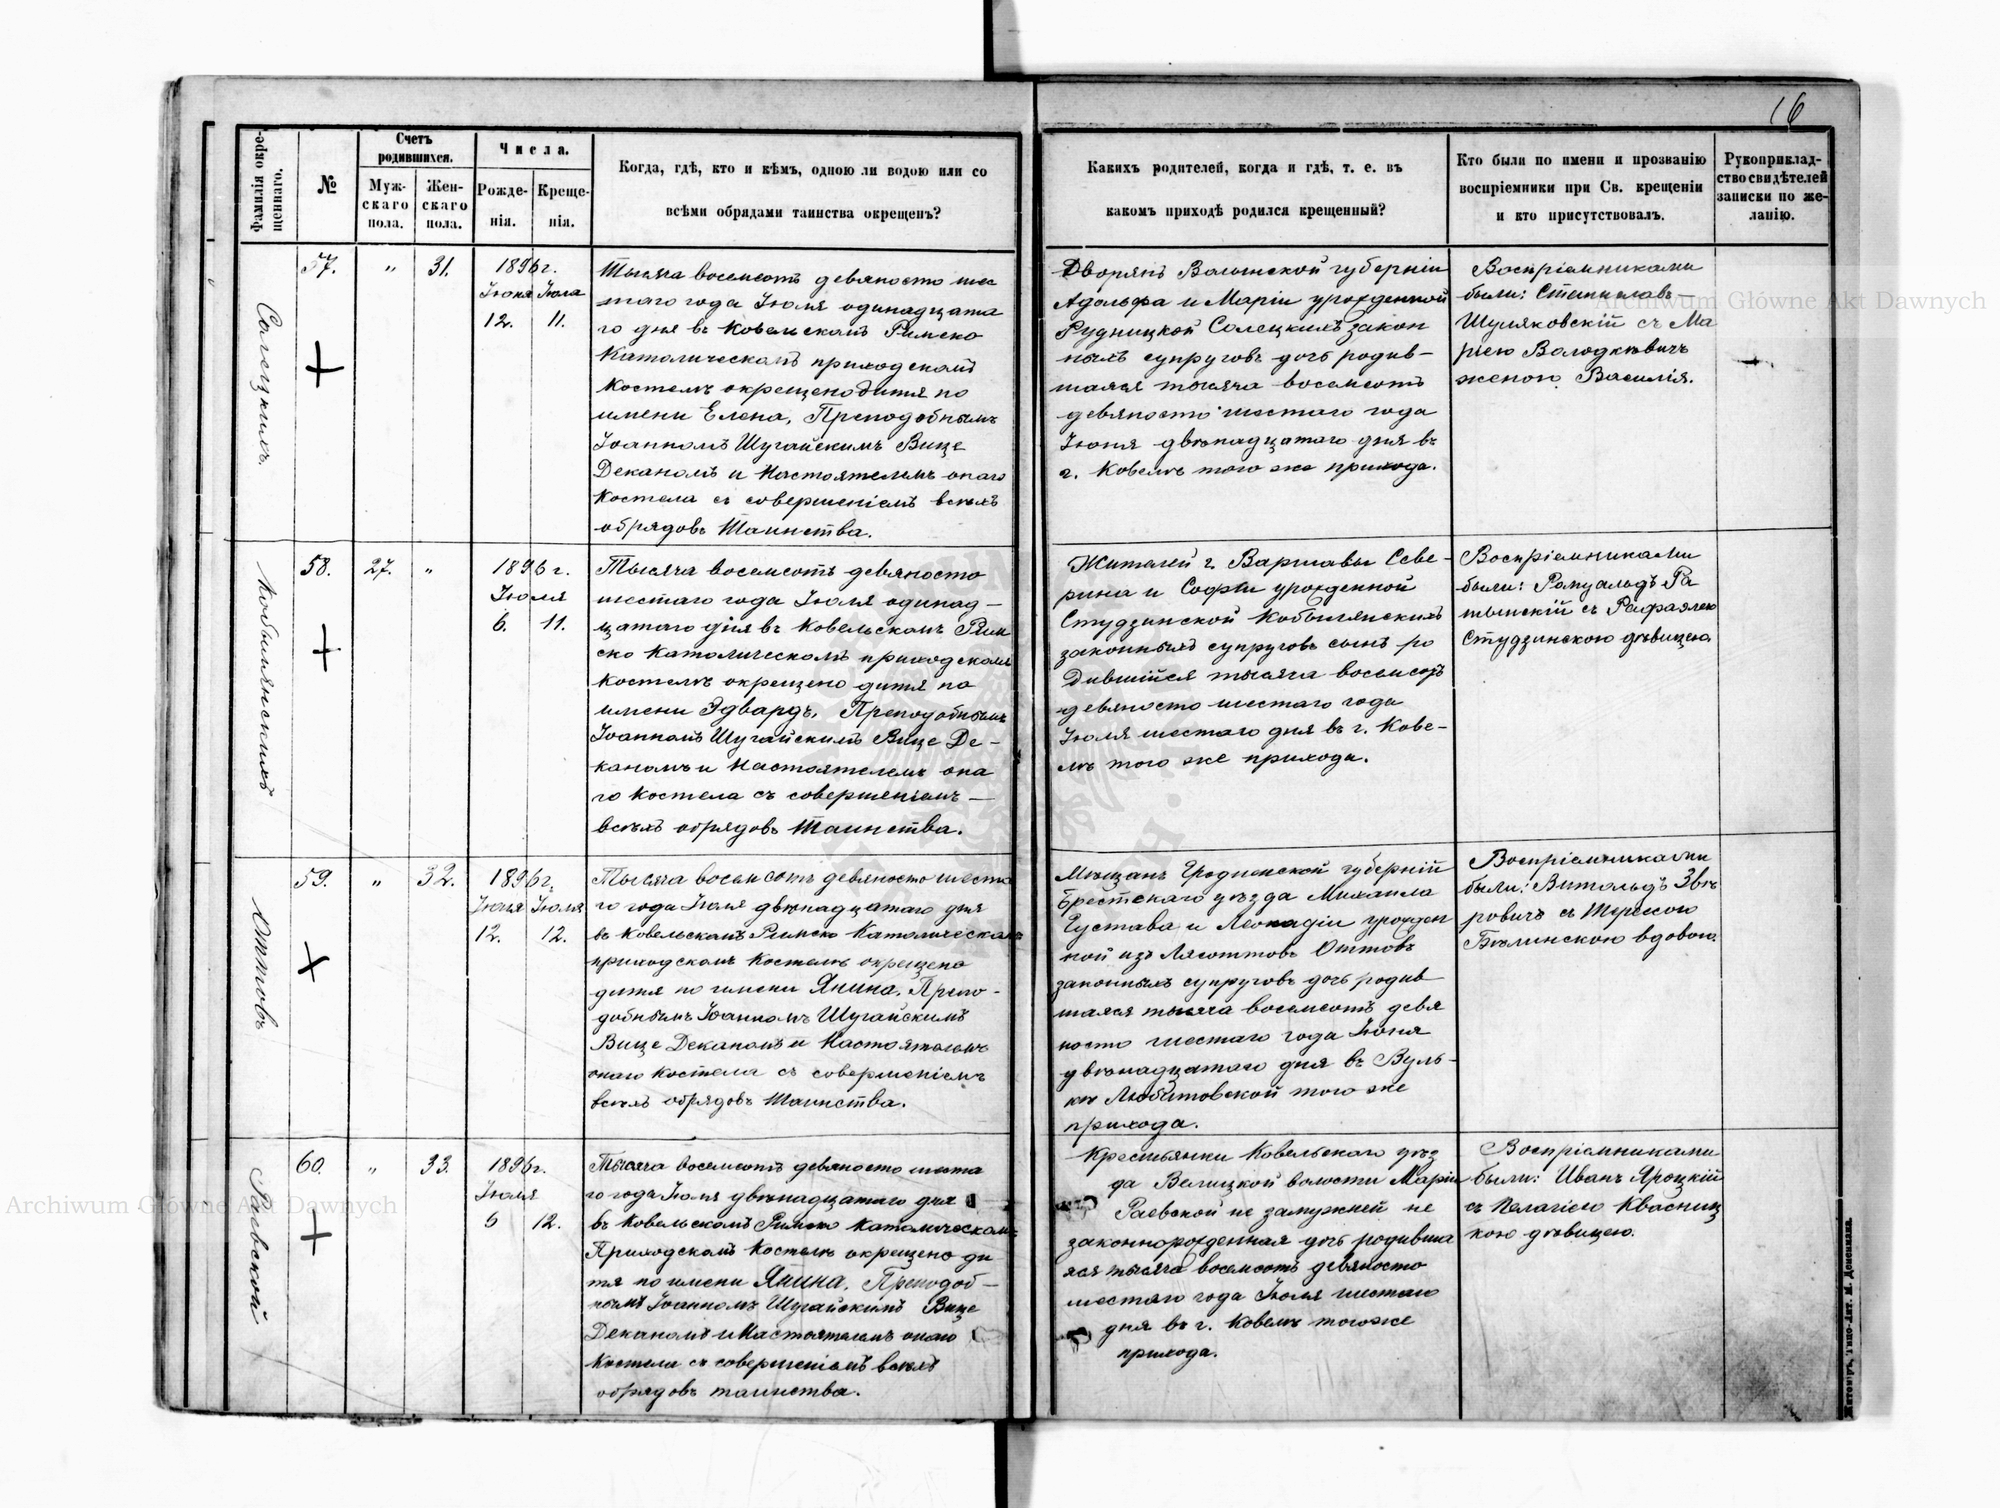 16
Фамилія окре-
щеннаго.
№
Счетъ
родившихся.
Муж-
скаго
пола.
Жен-
скаго
пола.
Числа.
Рожде-
нія.
Креще-
нія.
Когда, гдѣ, кто и кѣмъ, одною ли водою или со
всѣми обрядами таинства окрещенъ?
Какихъ родителей, когда и гдѣ, т. е. въ
какомъ приходѣ родился крещенный?
Кто были по имени и прозванію
воспріемники при Св. крещеніи
и кто присутствовалъ.
Рукоприклад-
ство свидѣтелей
записки по же-
ланію.
Солецкихъ.
57.
"
31.
1896 г.
Іюня Іюля
12. 11.
Тысяча восемсотъ девяносто шес
таго года Іюля одинадцата
го дня въ Ковельскомъ Римско
Католическомъ приходскомъ
Костелѣ окрещено дитя по
имени Елена, Преподобнымъ
Іоанномъ Шугайскимъ Вице
Деканомъ и Настоятелемъ онаго
Костела съ совершеніемъ всѣхъ
обрядовъ Таинства.
Дворянъ Волынской губерніи
Адольфа и Маріи урожденной
Рудницкой Солецкихъ закон
ныхъ супруговъ дочь родив-
шаяся тысяча восемсотъ
девяносто шестаго года
Іюня двѣнадцатаго дня въ
г. Ковелѣ того же прихода.
Воспріемниками
были: Станиславъ
Шуляковскій съ Ма
ріею Володкевичъ
женою Василія.
Кобылянскихъ
58.
27.
"
1896 г.
Іюля
6. 11.
Тысяча восемсотъ девяносто
шестаго года Іюля одинад-
цатаго дня въ Ковельскомъ Рим
ско Католическомъ приходскомъ
Костелѣ окрещено дитя по
имени Эдвардъ, Преподобнымъ
Іоанномъ Шугайскимъ Вице Де-
каномъ и Настоятелемъ она
го Костела съ совершеніемъ-
всѣхъ обрядовъ Таинства.
Жителей г. Варшавы Севе-
рина и Софіи урожденной
Студзинской Кобылянскихъ
законныхъ супруговъ сынъ ро
дившійся тысяча восемсотъ
девяносто шестаго года
Іюля шестаго дня въ г. Кове-
лѣ того же прихода.
Воспріемниками
были: Ромуальдъ Ра
тынскій съ Рафаэлею
Студзинскою дѣвицею.
Оттовъ
59.
"
32.
1896 г.
Іюня Іюля
12. 12.
Тысяча восемсотъ девяносто шеста
го года Іюля двѣнадцатаго дня
въ Ковельскомъ Римско Католическомъ
приходскомъ Костелѣ окрещено
дитя по имени Янина, Препо-
добнымъ Іоанномъ Шугайскимъ
Вице Деканомъ и Настоятелемъ
онаго Костела съ совершеніемъ
всѣхъ обрядовъ Таинства.
Мѣщанъ Гродненской губерніи
Брестскаго уѣзда Михаила
Густава и Леокадіи урожден
ной изъ Лясоттовъ Оттовъ
законныхъ супруговъ дочь родив
шаяся тысяча восемсотъ девя
носто шестаго года Іюня
двѣнадцатаго дня въ Вуль-
кѣ Любитовской того же
прихода.
Воспріемниками
были: Витольдъ Звѣ
ровичъ съ Тересою
Бѣлинскою вдовою.
Раевской
60.
"
33.
1896 г.
Іюля
6 12.
Тысяча восемсотъ девяносто шеста
го года Іюля двѣнадцатаго дня
въ Ковельскомъ Римско Католическомъ
Приходскомъ Костелѣ окрещено ди
тя по имени Янина, Преподоб-
нымъ Іоанномъ Шугайскимъ Вице
Деканомъ и Настоятелемъ онаго
Костела съ совершеніемъ всѣхъ
обрядовъ таинства.
Крестьянки Ковельскаго уѣз
да Велицкой волости Маріи
Раевской не замужней не
законнорожденная дочь родивша
яся тысяча восемсотъ девяносто
шестаго года Іюля шестаго
дня въ г. Ковелѣ того же
прихода.
Воспріемниками
были: Иванъ Яроцкій
съ Пелагіею Квасниц
кою дѣвицею.
Житоміръ, Типо-Лит. М. Дененмана.
Archiwum Główne Akt Dawnych
Archiwum Główne Akt Dawnych